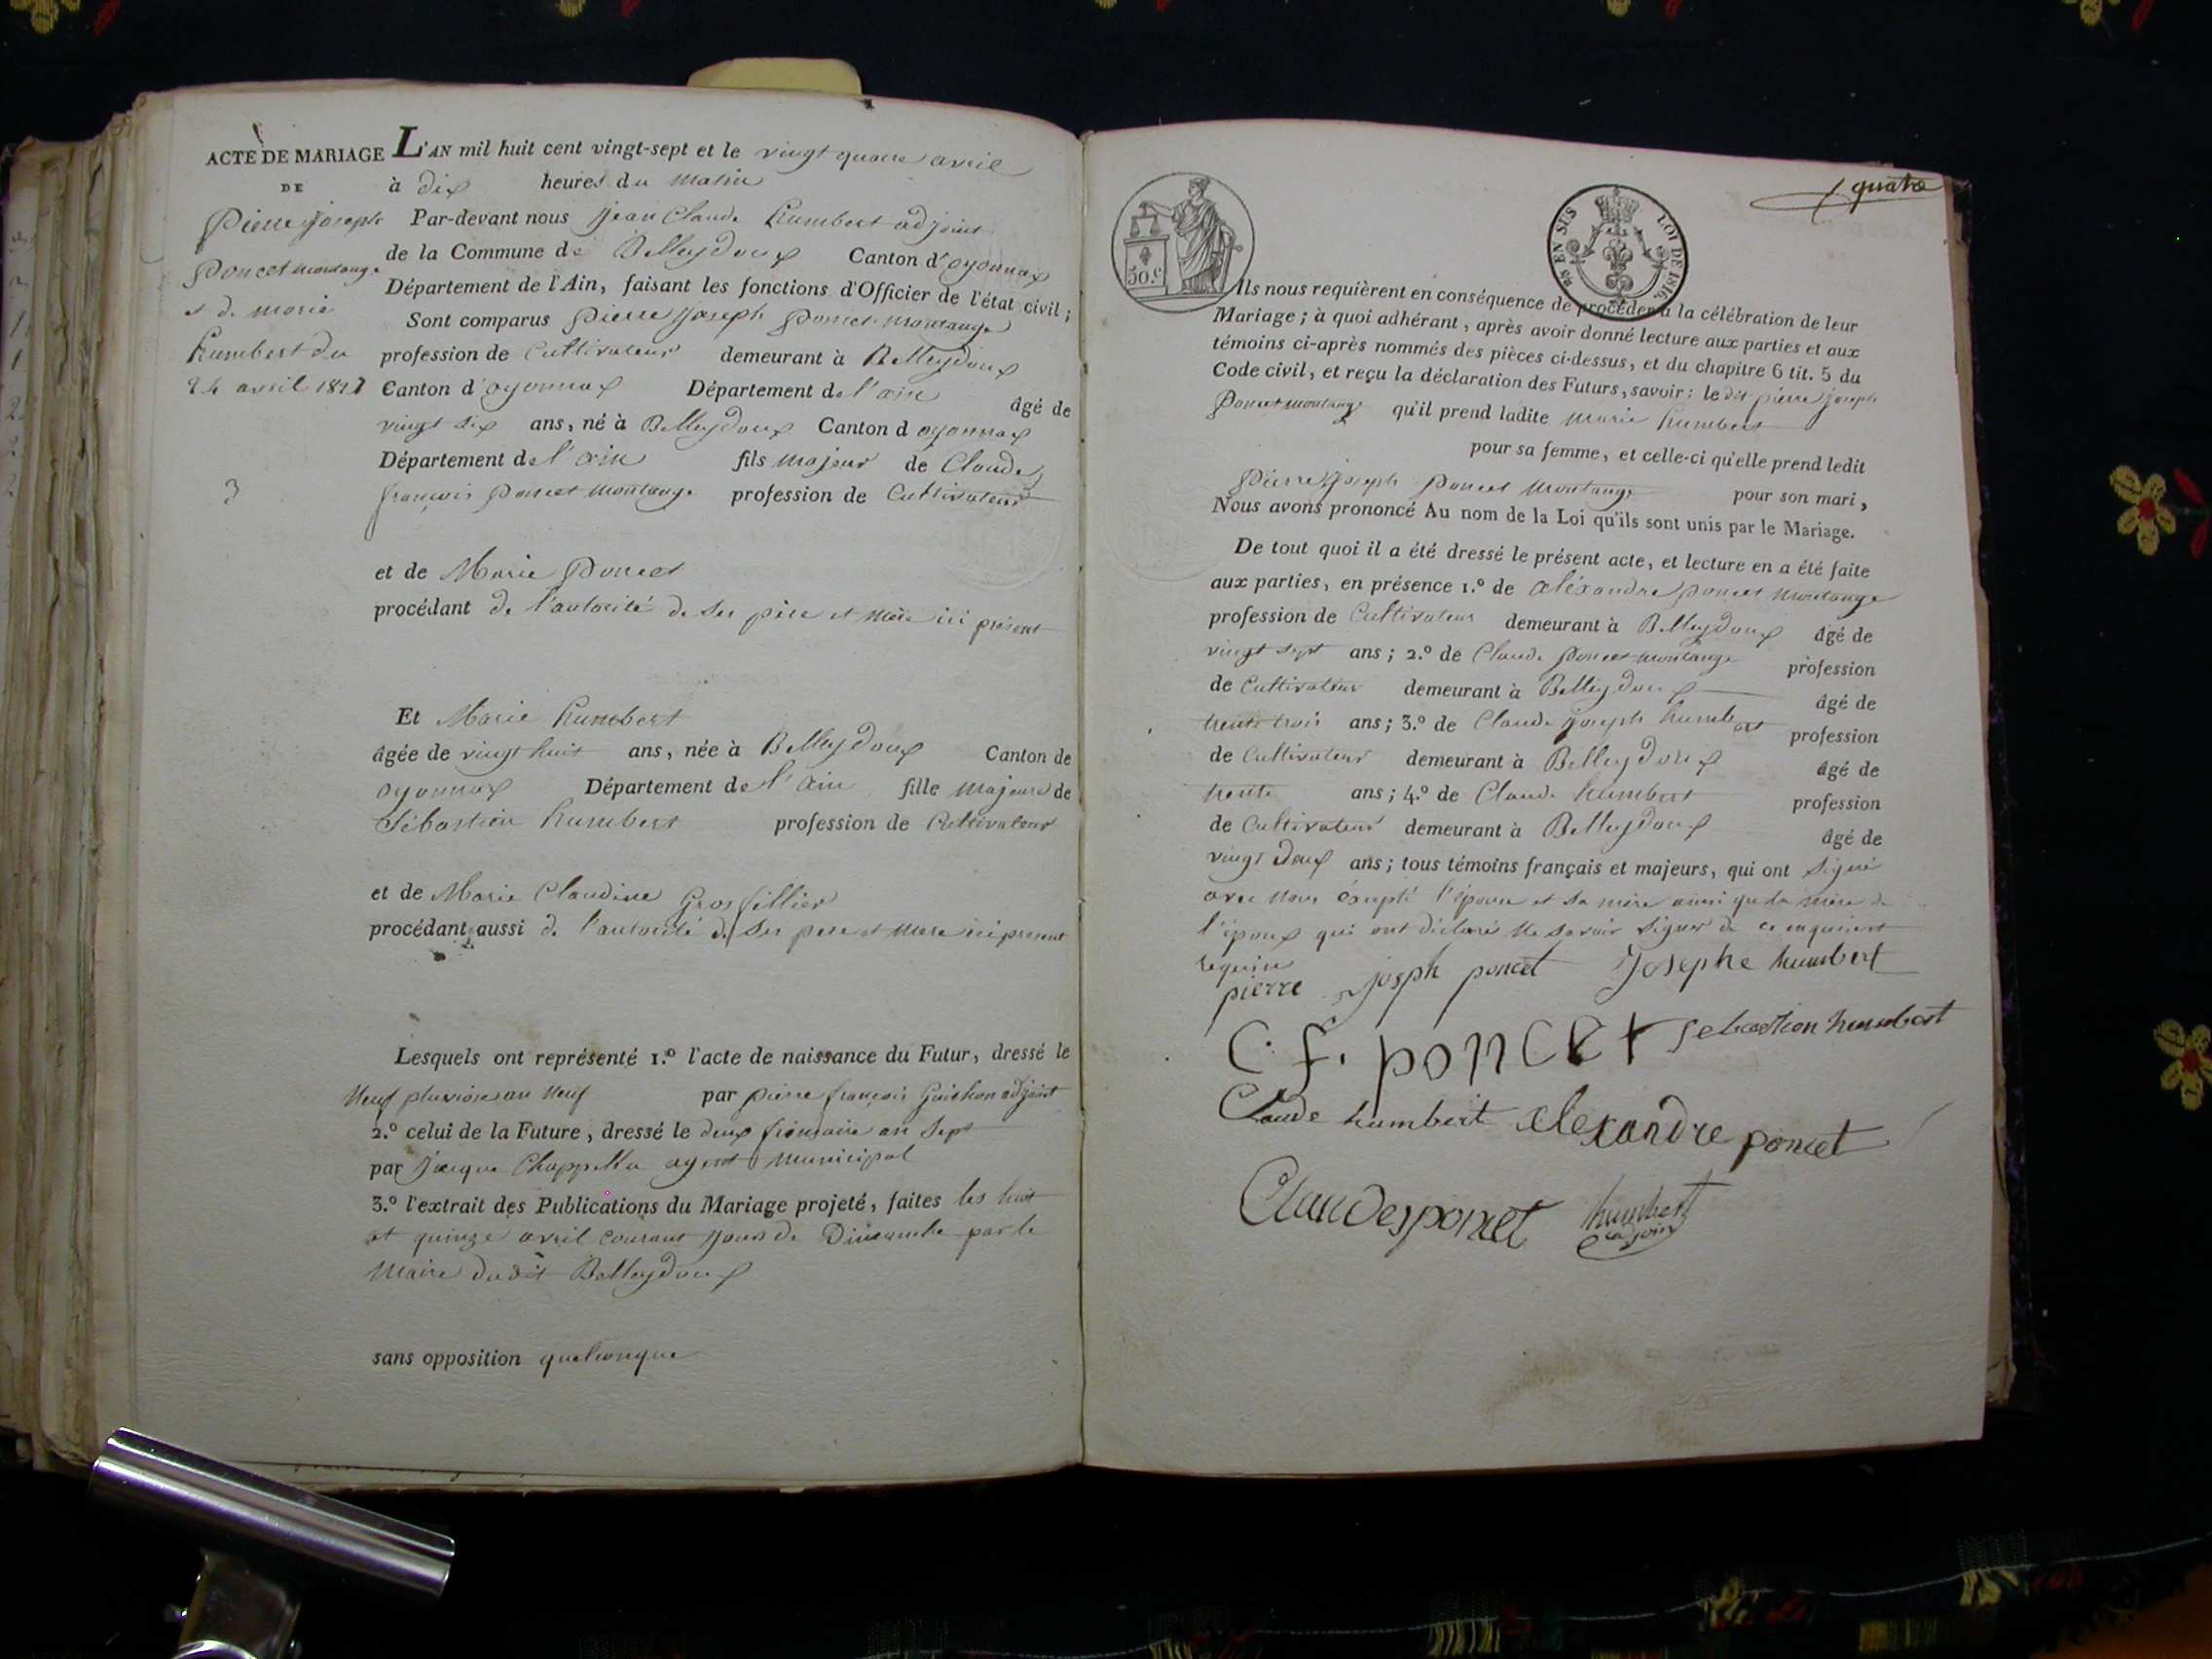 ACTE DE MARIAGE
DE
Pierre joseph
Poncet montange
et de marie
humbert du
24 avril 1827
3
L'AN mil huit cent vingt-sept et le vingt quatre avril
à dix heures du matin
Par-devant nous jean Claude humbert adjoint
de la Commune de Belleydoux Canton d'oyonnax
Département de l'Ain, faisant les fonctions d'Officier de l'état civil;
Sont comparus Pierre joseph Poncet-montange
profession de Cultivateur demeurant à Belleydoux
Canton d'oyonnax Département de l'ain âgé de
vingt six ans, né à Belleydoux Canton d oyonnax
Département de l'ain fils majeur de Claude
françois Poncet montange profession de Cultivateur
et de Marie Poncet
procédant de l'autorité de ses père et mère ici présent
Et Marie humbert
âgée de vingt huit ans, née à Belleydoux Canton de
oyonnax Département de l'ain fille majeure de
Sébastien humbert profession de Cultivateur
et de Marie Claudine Grosfillier
procédant aussi de l'autorité de ses pere et mere ici present
Lesquels ont représenté 1.º l'acte de naissance du Futur, dressé le
Neuf pluviose an neuf par pierre françois Guichon adjoint
2.º celui de la Future, dressé le deux frimaire an sept
par jacque Chappella agent municipal
3.º l'extrait des Publications du Mariage projeté, faites les huit
et quinze avril courant jours de Dimanche par le
Maire dudit Belleydoux
sans opposition quelconque
quatre
50.c
EN SUS LOI DE 1816.
Ils nous requièrent en conséquence de procéder à la célébration de leur
Mariage; à quoi adhérant, après avoir donné lecture aux parties et aux
témoins ci-après nommés des pièces ci-dessus, et du chapitre 6 tit. 5 du
Code civil, et reçu la déclaration des Futurs, savoir: le dit pierre joseph
Poncet montange qu'il prend ladite marie humbert
pour sa femme, et celle-ci qu'elle prend ledit
Pierre joseph poncet montange pour son mari,
Nous avons prononcé Au nom de la Loi qu'ils sont unis par le Mariage.
De tout quoi il a été dressé le présent acte, et lecture en a été faite
aux parties, en présence 1.º de aléxandre poncet montange
profession de Cultivateur demeurant à Belleydoux âgé de
vingt sept ans; 2.º de Claude poncet-montange profession
de Cultivateur demeurant à Belleydoux âgé de
trente trois ans; 3.º de Claude joseph humbert profession
de Cultivateur demeurant à Belleydoux âgé de
trente ans; 4.º de Claude humbert profession
de Cultivateur demeurant à Belleydoux âgé de
vingt deux ans; tous témoins français et majeurs, qui ont signé
avec nous éxcepté l'épouse et sa mère ainsi que la mère de
l'époux qui ont déclaré ne savoir signer de ce enquis et
requis
pierre josph poncet Josephe humbert
C. f. poncet sebastien humbert
Claude humbert alexandre poncet
Claude poncet humbert
adjoint